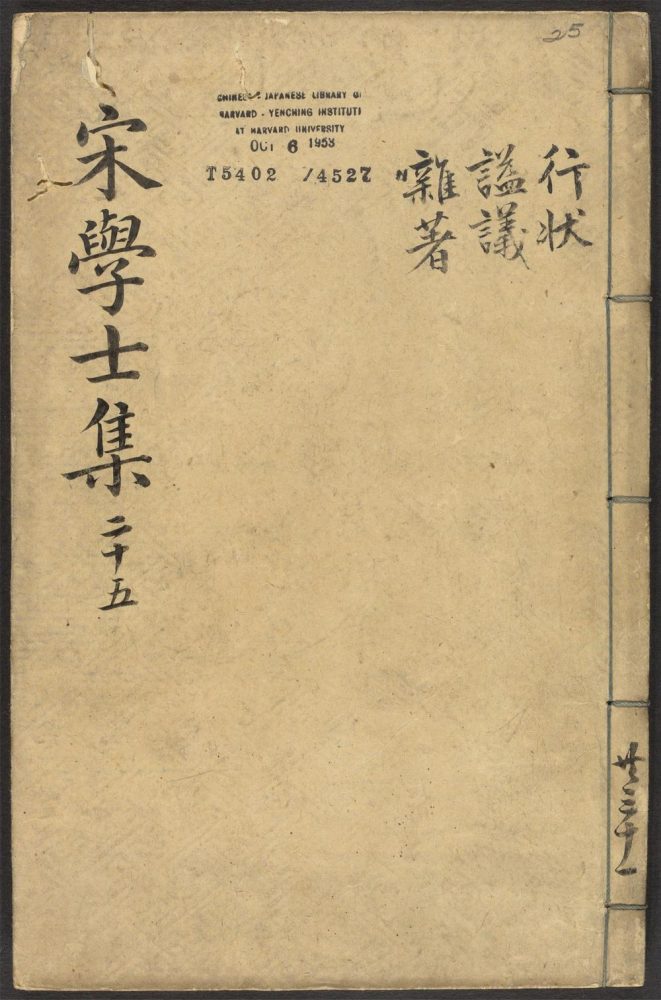 25
行状
謚議
雜著
CHINESE - JAPANESE LIBRARY OF
HARVARD - YENCHING INSTITUTE
AT HARVARD UNIVERSITY
OCT 6 1953
T5402 /4527
宋學士集 二十五
共三十一